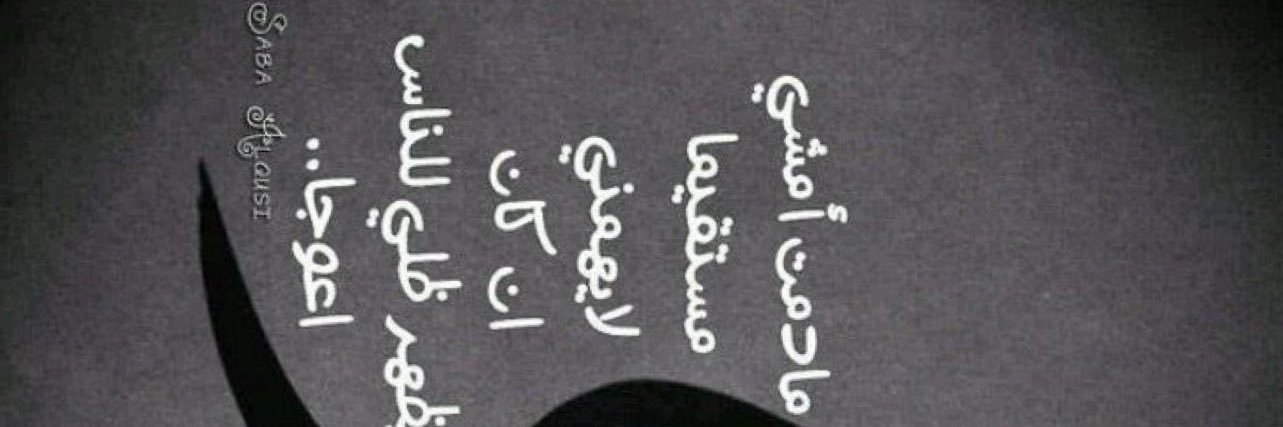 مادمت أمشي
مستقيما
لايهمني
ان كان
يظهر ظلي للناس
اعوجا..
SABA ALOUSI